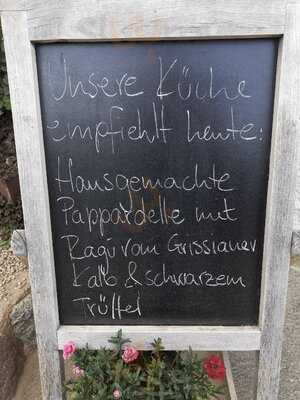 Unsere Küche
empfiehlt heute:
Hausgemachte
Pappardelle mit
Ragù vom Grissianer
Kalb & schwarzem
Trüffel